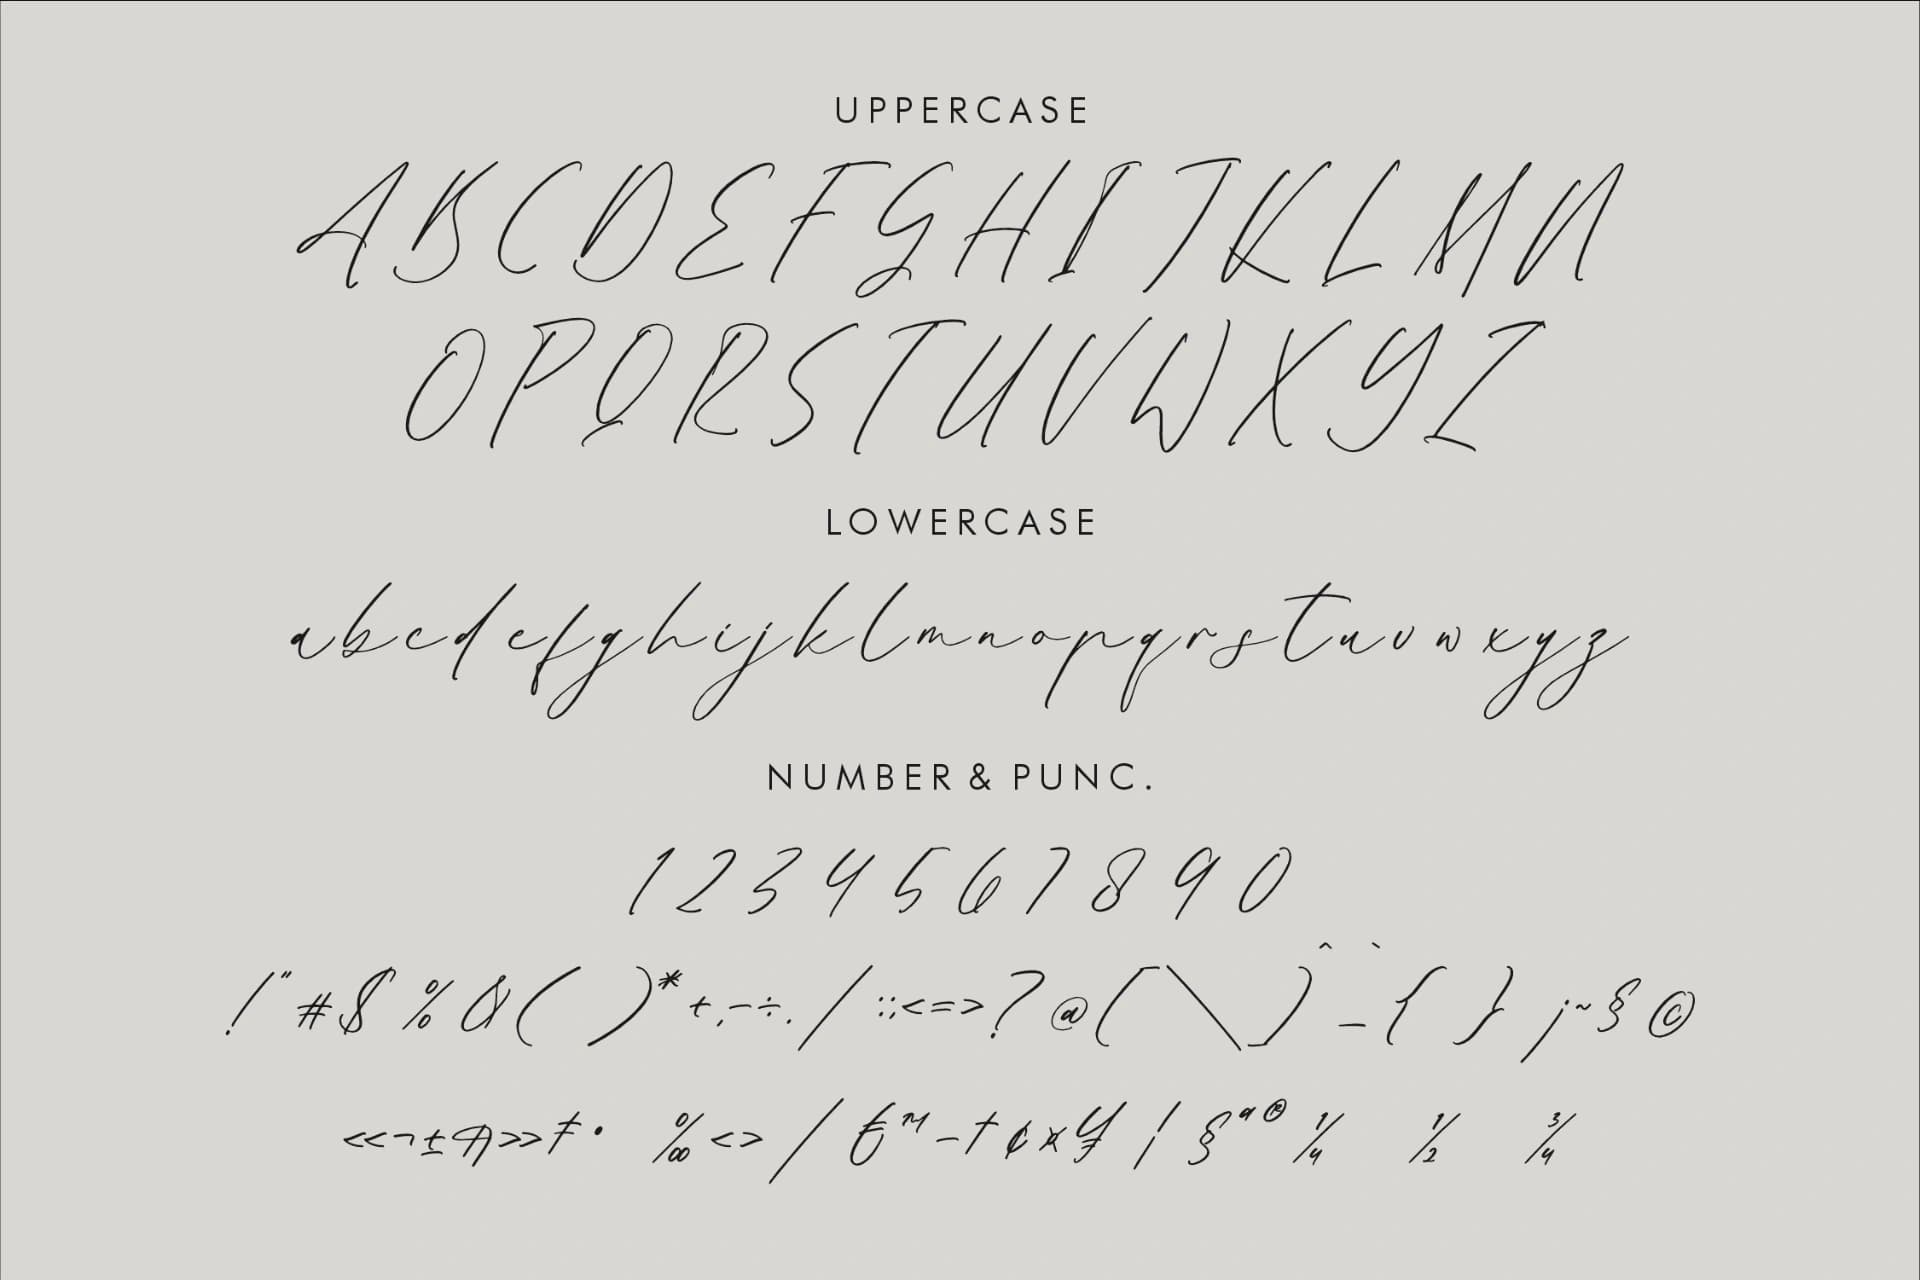 UPPERCASE
A B C D E F G H I J K L M N
O P Q R S T U V W X Y Z
LOWERCASE
a b c d e f g h i j k l m n o p q r s t u v w x y z
NUMBER & PUNC.
1 2 3 4 5 6 7 8 9 0
! " # $ % & ( ) * + , - ÷ . / : ; < = > ? @ [ \ ] ^ _ ` { } ¡ ~ § ©
« ¬ ± ¶ » ‡ • ‰ < > / € ™ – † ¢ ¤ ¥ ¦ § ª ® ¼ ½ ¾